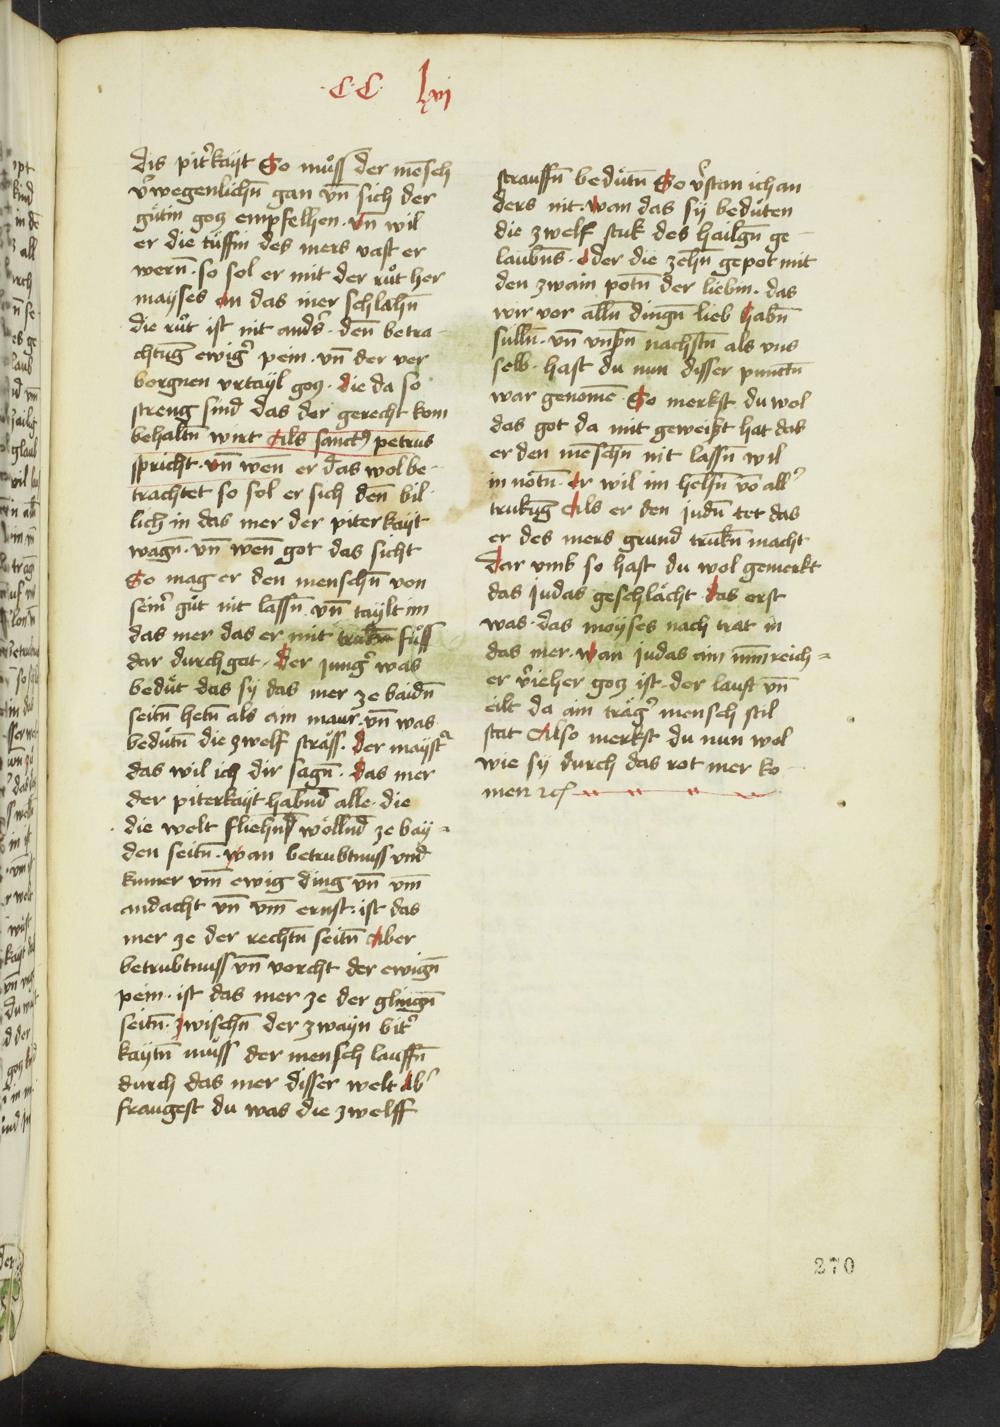 ·C·C· lxvj
dis pit᷑kayt So muͦss der mēsch
v᷑wegenlichn̄ gan vn̄ sich der
guͤtin gotz empfelhen. vn̄ wil
er die tuͤffin des mers vast er
wern̄. so sol er mit der ruͦt her
mayses an das mer schlahn̄
die ruͦt ist nit ands᷑. den̄ betra-
chtūg ewig᷑ pein. vn̄ der ver
borgnen vrtayl gotz. die da so
streng sind das der gerecht kom
behaltn̄ wirt Als sanctꝰ petrus
spricht. vn̄ wen̄ er das wol be-
trachtet so sol er sich den̄ bil-
lich in das mer der piterkayt
wagn̄. vn̄ wen̄ got das sicht
So mag er den menschn̄ von
sein᷑ guͤt nit lassn̄. vn̄ taylt im
das mer das er mit fuͤss
dar durch gat. der jung᷑ was
beduͤt das sy das mer ze baidn̄
seitn̄ hetn̄ als ain maur. vn̄ was
beduͤtn̄ die zwelf straͤss. der mayst᷑
das wil ich dir sagn̄. das mer
der piterkayt habnd alle. die
die welt fliehnd woͤllnd ze bay-
den seitn̄. wan betrubtnuss vnd
kumer vm̄ ewig ding vn̄ vm̄
andacht vn̄ vm̄ ernst: ist das
mer ze der rechtn̄ seitn̄ Aber
betrubtnuss vn̄ vorcht der ewign̄
pein. ist das mer ze der
seitn̄. zwischn̄ der zwayn bit᷑
kaytn̄ muͦss der mensch lauffn̄
durch das mer disser welt Ab᷑
fraugest du was die zwelff
strauffn̄ beduͤtn̄ So v᷑stan ich an
ders nit. wan das sy beduͤten
die zwelf stuk des hailgn̄ ge-
laubns. oder die zehn̄ gepot mit
den zwain potn̄ der liebin. das
wir vor alln̄ dingn̄ lieb habn̄
sulln̄. vn̄ vnsn̄ nachstn̄ als vns
selb. hast du nun disser punctn̄
war genomē So merkst du wol
das got da mit geweist hat das
er den menschn̄ nit lassn̄ wil
in noͤtn̄. Er wil im helfn̄ vō all᷑
trukūg Als er den judn̄ tet das
er des mers grund trukn̄ macht
Dar vmb so hast du wol gemerkt
das judas geschlaͤcht. das erst
was. das moyses nach trat in
das mer. wan judas ain reich-
er v᷑ieher gotz ist. der lauft vn̄
eilt da ain traͤg᷑ mensch stil
stat Also merkst du nun wol
wie sy durch das rot mer ko-
men ꝛcꝭ
270